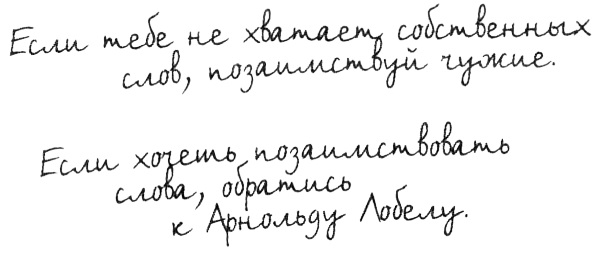 Если тебе не хватает собственных
слов, позаимствуй чужие.
Если хочешь позаимствовать
слова, обратись
к Арнольду Лобелу.